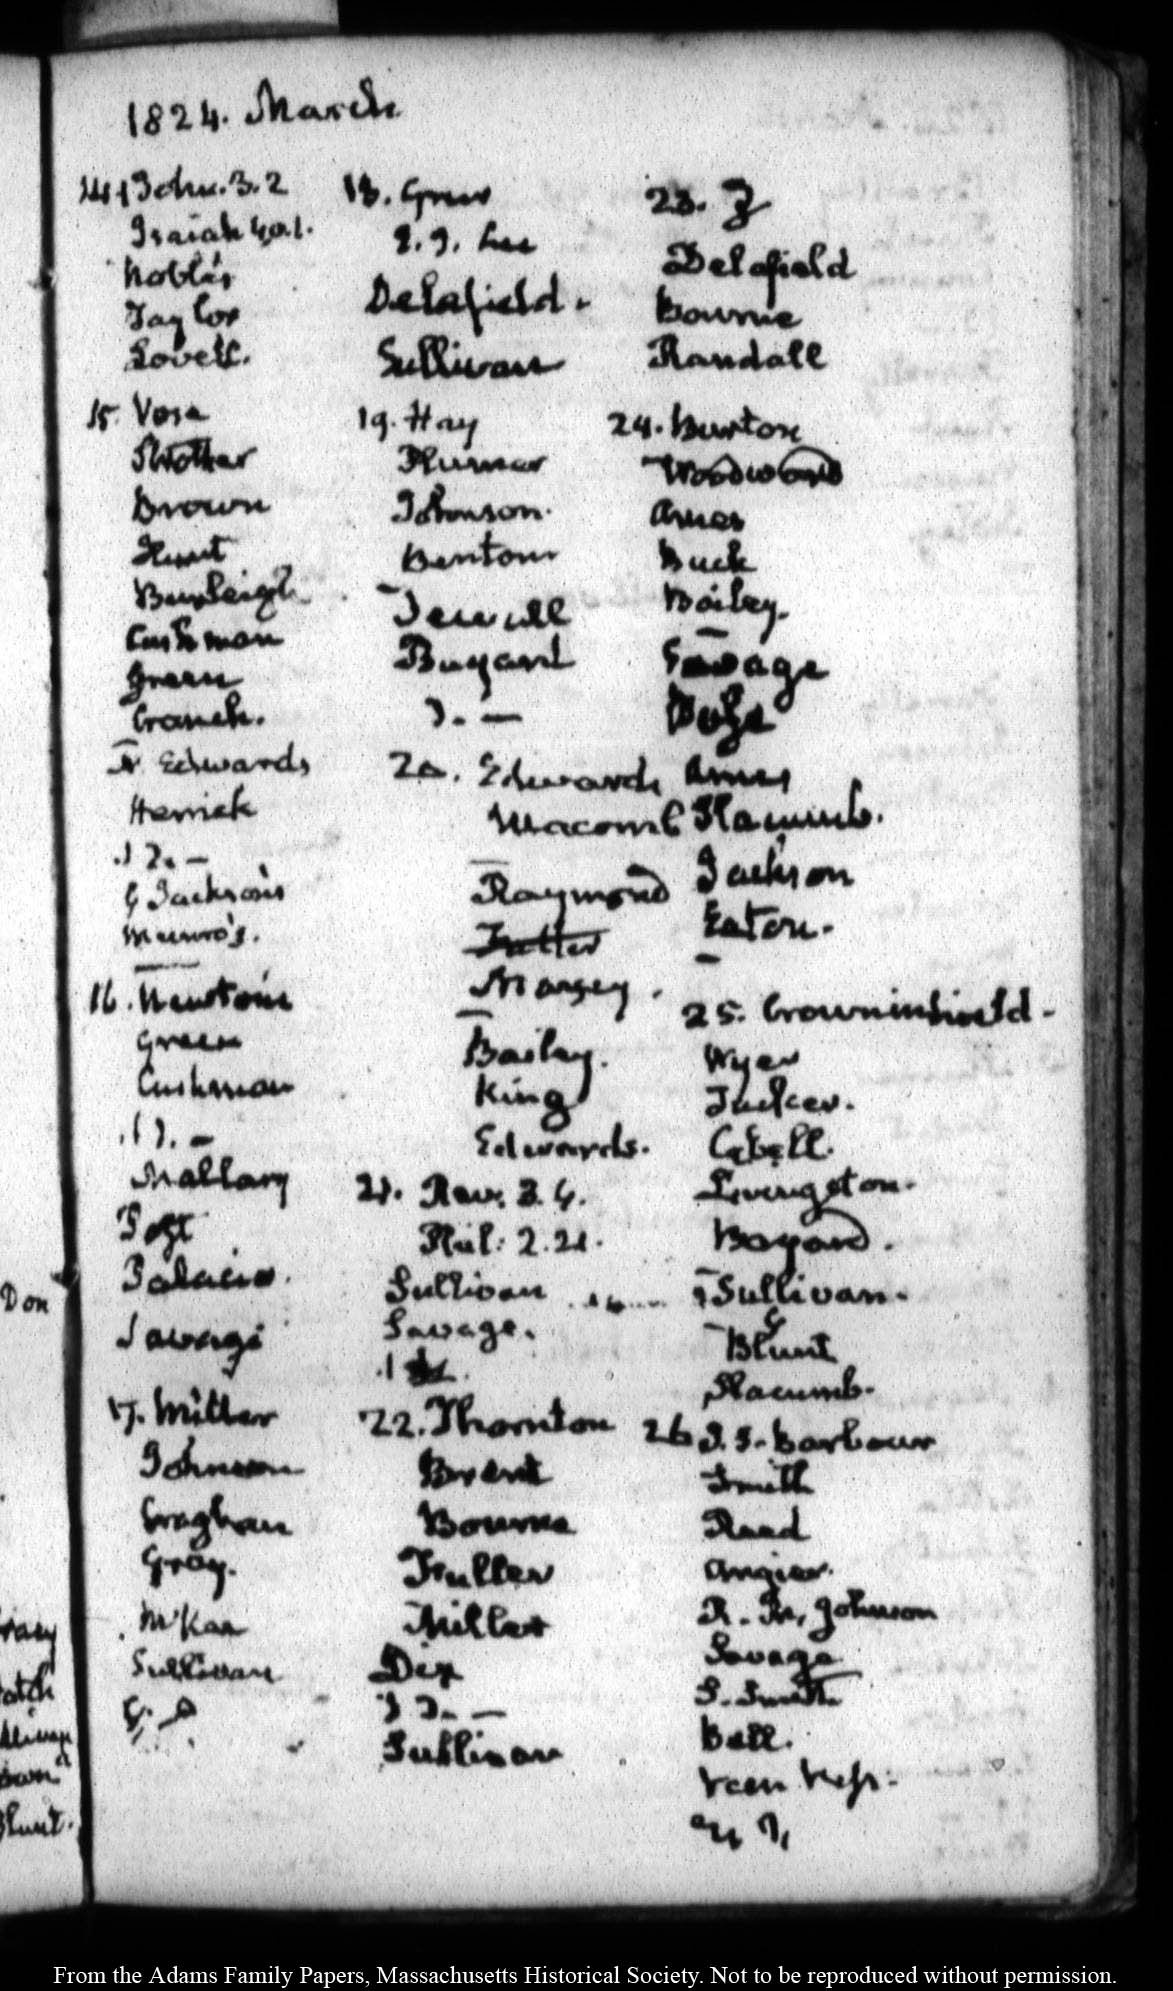 1824. March
14. John. 3.2
Isaiah 40.1.
Noble's
Taylor
Lovell.
15. Vose
Strother
Brown
Hunt
Burleigh
Cushman
Green
Cranch.
Edwards
Herrick
G Jackson's
Munro's.
16. Newton's
Green
Cushman
Mallary
Post
Palacio.
Savage
17. Miller
Johnson
Croghan
Gray.
McKean
Sullivan
18. Grew
Lee
Delafield.
Sullivan
19. Hay
Plumer
Johnson.
Benton
Jewell
Bayard
20. Edwards
Macomb
Raymond
Fuller
Massey.
Bailey.
King
Edwards.
21. Rev. 3.4.
Phil: 2.21.
Sullivan
Savage.
22. Thornton
Brent
Bourne
Fuller
Miller
Dix
Sullivan
23.
Delafield
Bourne
Randall
24. Burton
Woodward
Ames
Buck
Bailey.
Savage
Ames
Slacumb.
Jackson
Eaton.
25. Crowninshield.
Wyer
Tucker.
Cabell.
Livingston.
Bayard.
Sullivan.
Blunt
Slacumb.
26 J. S. Barbour
Smith
Reed
Angier.
R. M. Johnson
Savage
S. Smith
Ball.
Van Ness.
Don
Blunt.
From the Adams Family Papers, Massachusetts Historical Society. Not to be reproduced without permission.